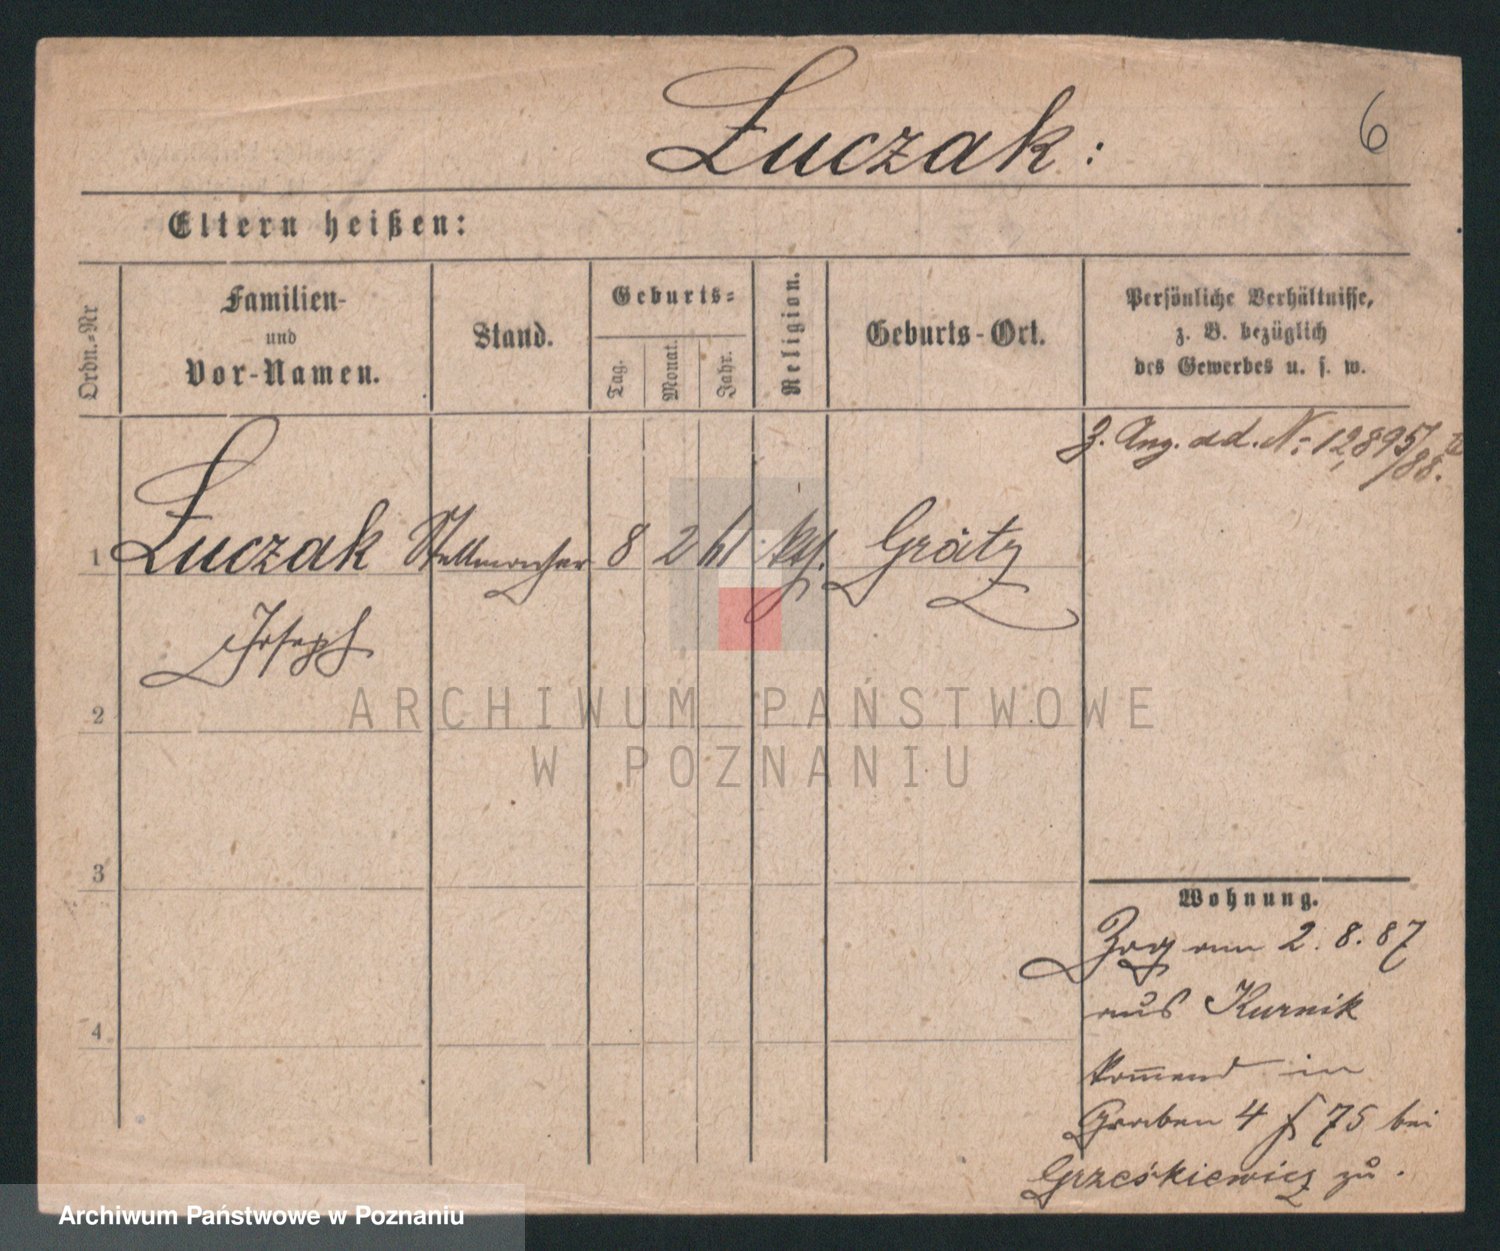 Łuczak:
6
Eltern heißen:
Ordn.-Nr
Familien-
und
Vor-Namen.
Stand.
Geburts-
Tag.
Monat.
Jahr.
Religion.
Geburts-Ort.
Persönliche Verhältnisse,
z. B. bezüglich
des Gewerbes u. s. w.
Z. Ang. d d. N: 12,895/88.
1 Łuczak Stellmacher 8 2 kth. Grätz
Joseph
2
3
4
Wohnung.
Zog am 2. 8. 87
aus Kurnik
kom̅end in
Graben 4 f 75 bei
Grześkiewicz zu.
ARCHIWUM PAŃSTWOWE
W POZNANIU
Archiwum Państwowe w Poznaniu